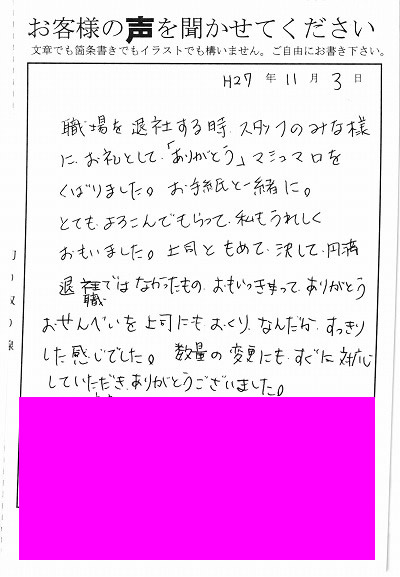 お客様の声を聞かせてください
文章でも箇条書きでもイラストでも構いません。ご自由にお書き下さい。
H27年11月3日
職場を退社する時、スタッフのみな様
に、お礼として、「ありがとう」マシュマロを
くばりました。お手紙と一緒に。
とても、よろこんでもらって、私もうれしく
おもいました。上司ともめて、決して、円満
退職ではなかったもの、おもいっきって、ありがとう
おせんべいを上司にもおくり、なんだか、すっきり
した感じでした。数量の変更にも、すぐに対応
していただき、ありがとうございました。